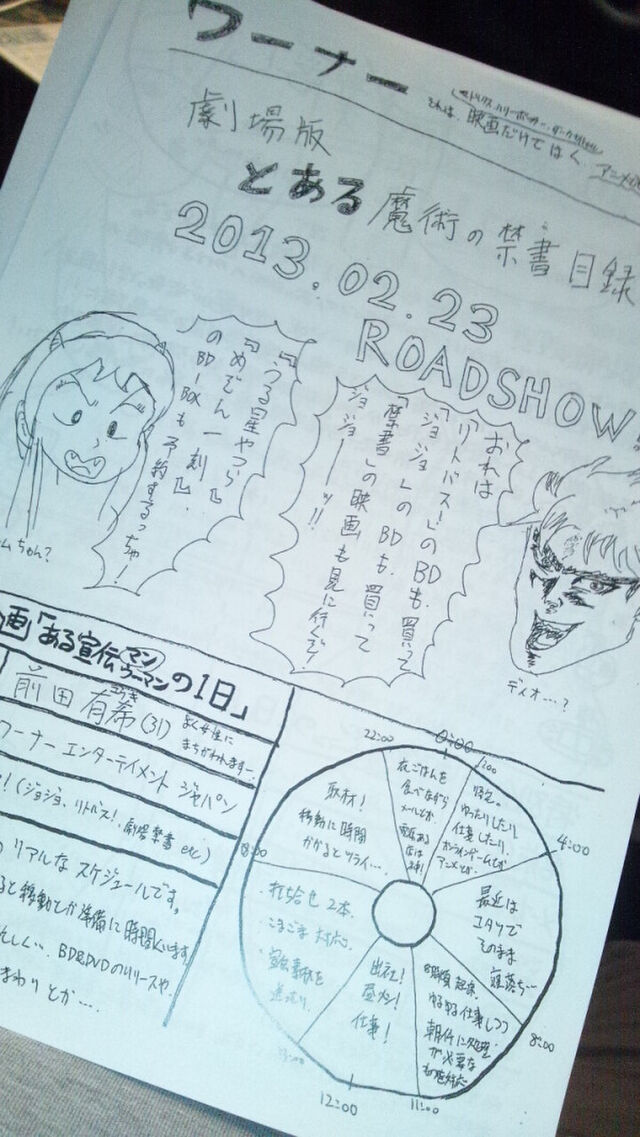 ワーナー
マトリクス、ハリーポッター、
それは、映画だけではく、アニメ
劇場版
とある魔術の禁書目録
2013.02.23
ROADSHOW!
「うる星やつら」
「めぞん一刻」
のBD-BOXも
予約するっちゃ!
ムちゃん?
おれは
「リトバス!」のBDも買って
「ジョジョ」のBDも買って
「禁書」の映画も見に行くぞ!
ジョジョーーッ!!
ディオ…?
画「ある宣伝マンウーマンの1日」
前田有希(31)
ゆうき
よく女性に
まちがわれますー。
ワーナーエンターテイメントジャパン
!(ジョジョ、リトバス!、劇場禁書 etc)
のリアルなスケジュールです。
ると移動とか準備に時間
BDやDVDのリリースや、
まわりとか….
0:00
1:00
4:00
8:00
11:00
12:00
22:00
夜ごはんを
食べながら
メールとか。
帰宅。
ゆったりしたり
仕事したり、
オンラインゲームとか
アニメとか。
最近は
コタツで
そのまま
寝落ち…
ゆるゆる仕事しつつ
朝イチに処理
が必要な
ものを対応
出社!
昼メシ!
仕事!
・打ち合せ2本。
・こまごま対応。
取材!
移動に時間
かかるとツライ…